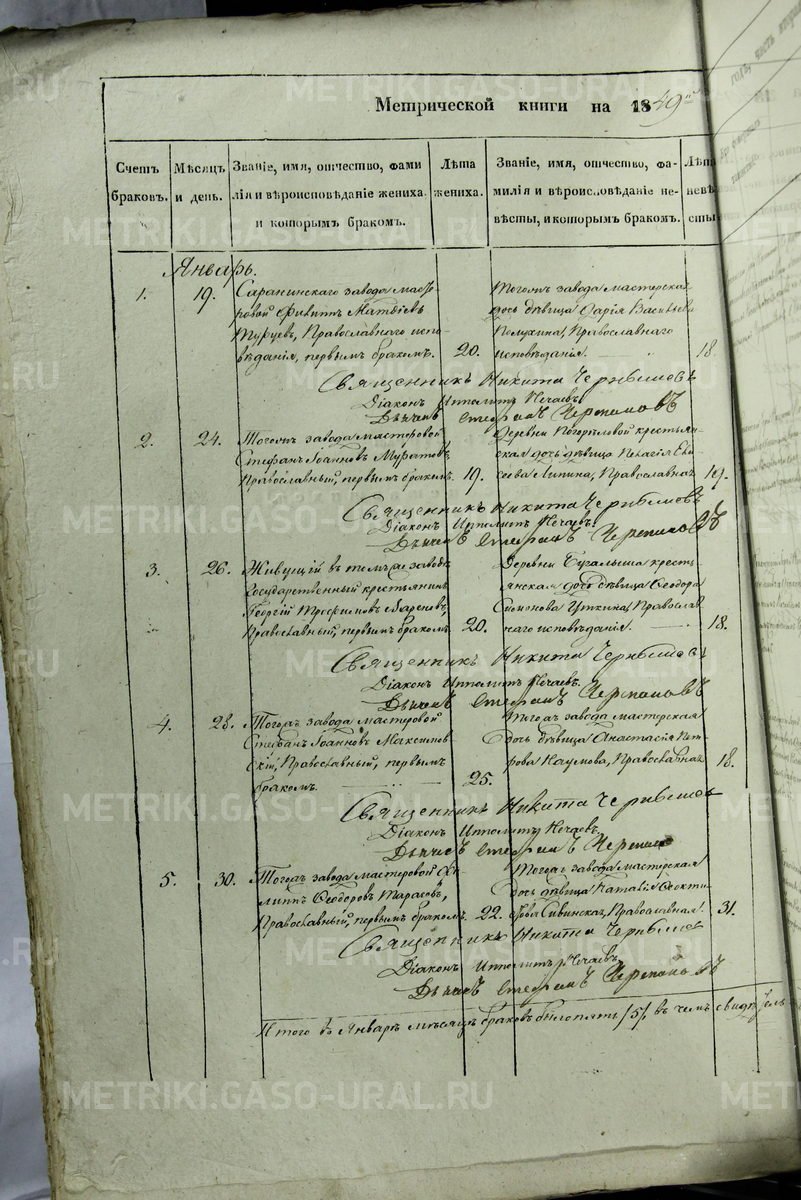 Метрической книги на 1849й
Счетъ браковъ.
Мѣсяцъ и день.
Званіе, имя, отчество, фамилія и вѣроисповѣданіе жениха. и которымъ бракомъ.
Лѣта жениха.
Званіе, имя, отчество, фамилія и вѣроисповѣданіе невѣсты, и которымъ бракомъ.
Январь.
1. 19. Саранинскаго завода масте-
ровой Филиппъ Матвѣевъ
Православнаго испо-
вѣданія, первымъ бракомъ. 20.
Тогожъ завода мастерская
дочь дѣвица Дарія Васильева
Полухина, Православнаго
исповѣданія. 18.
Священникъ Никита
Діаконъ Ипполитъ Нечаевъ
Дьячекъ Стефанъ Черепановъ
2. 24. Тогожъ завода мастеровой
Стефанъ Іоанновъ Муратовъ
Православный, первымъ бракомъ. 19.
Деревни крестьян-
ская дочь дѣвица Пелагія Ев
сеева Липина, Православная 19.
Священникъ Никита
Діаконъ Ипполитъ Нечаевъ
Дьячекъ Стефанъ Черепановъ
3. 26. Живущій въ темъ же заводѣ
Государственный крестьянинъ
Георгій Трофимовъ
Православный, первымъ бракомъ. 20.
Деревни Бугалыша кресть
янская дочь дѣвица Феодора
Уткина, Православ
наго исповѣданія. 18.
Священникъ Никита
Діаконъ Ипполитъ Нечаевъ.
Дьячекъ Стефанъ Черепановъ
4. 28. Тогожъ завода мастеровой
Стефанъ Іоанновъ Максимов
скій, Православный, первымъ
бракомъ. 25.
Тогожъ завода мастерская
дочь дѣвица Анастасія Пет
рова Наумова, Православная 18.
Священникъ Никита
Діаконъ Ипполитъ Нечаевъ
Дьячекъ Стефанъ
5. 30. Тогожъ завода мастеровой Фи
липпъ Феодоровъ Тарасовъ,
Православный, первымъ бракомъ. 22.
Тогожъ завода мастерская
дочь дѣвица Наталія
Сивинская, Православная. 31.
Священникъ Никита
Діаконъ Ипполитъ Нечаевъ
Дьячекъ Стефанъ Черепановъ
Итого въ Январѣ мѣсяцѣ браковъ было пять /5/ въ чемъ
METRIKI.GASO-URAL.RU